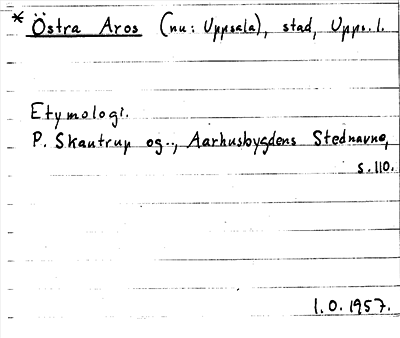 * Östra Aros (nu: Uppsala), stad, Upps. l.
Etymologi.
P. Skautrup og.., Aarhusbygdens Stednavne,
s. 110.
1.0. 1957.